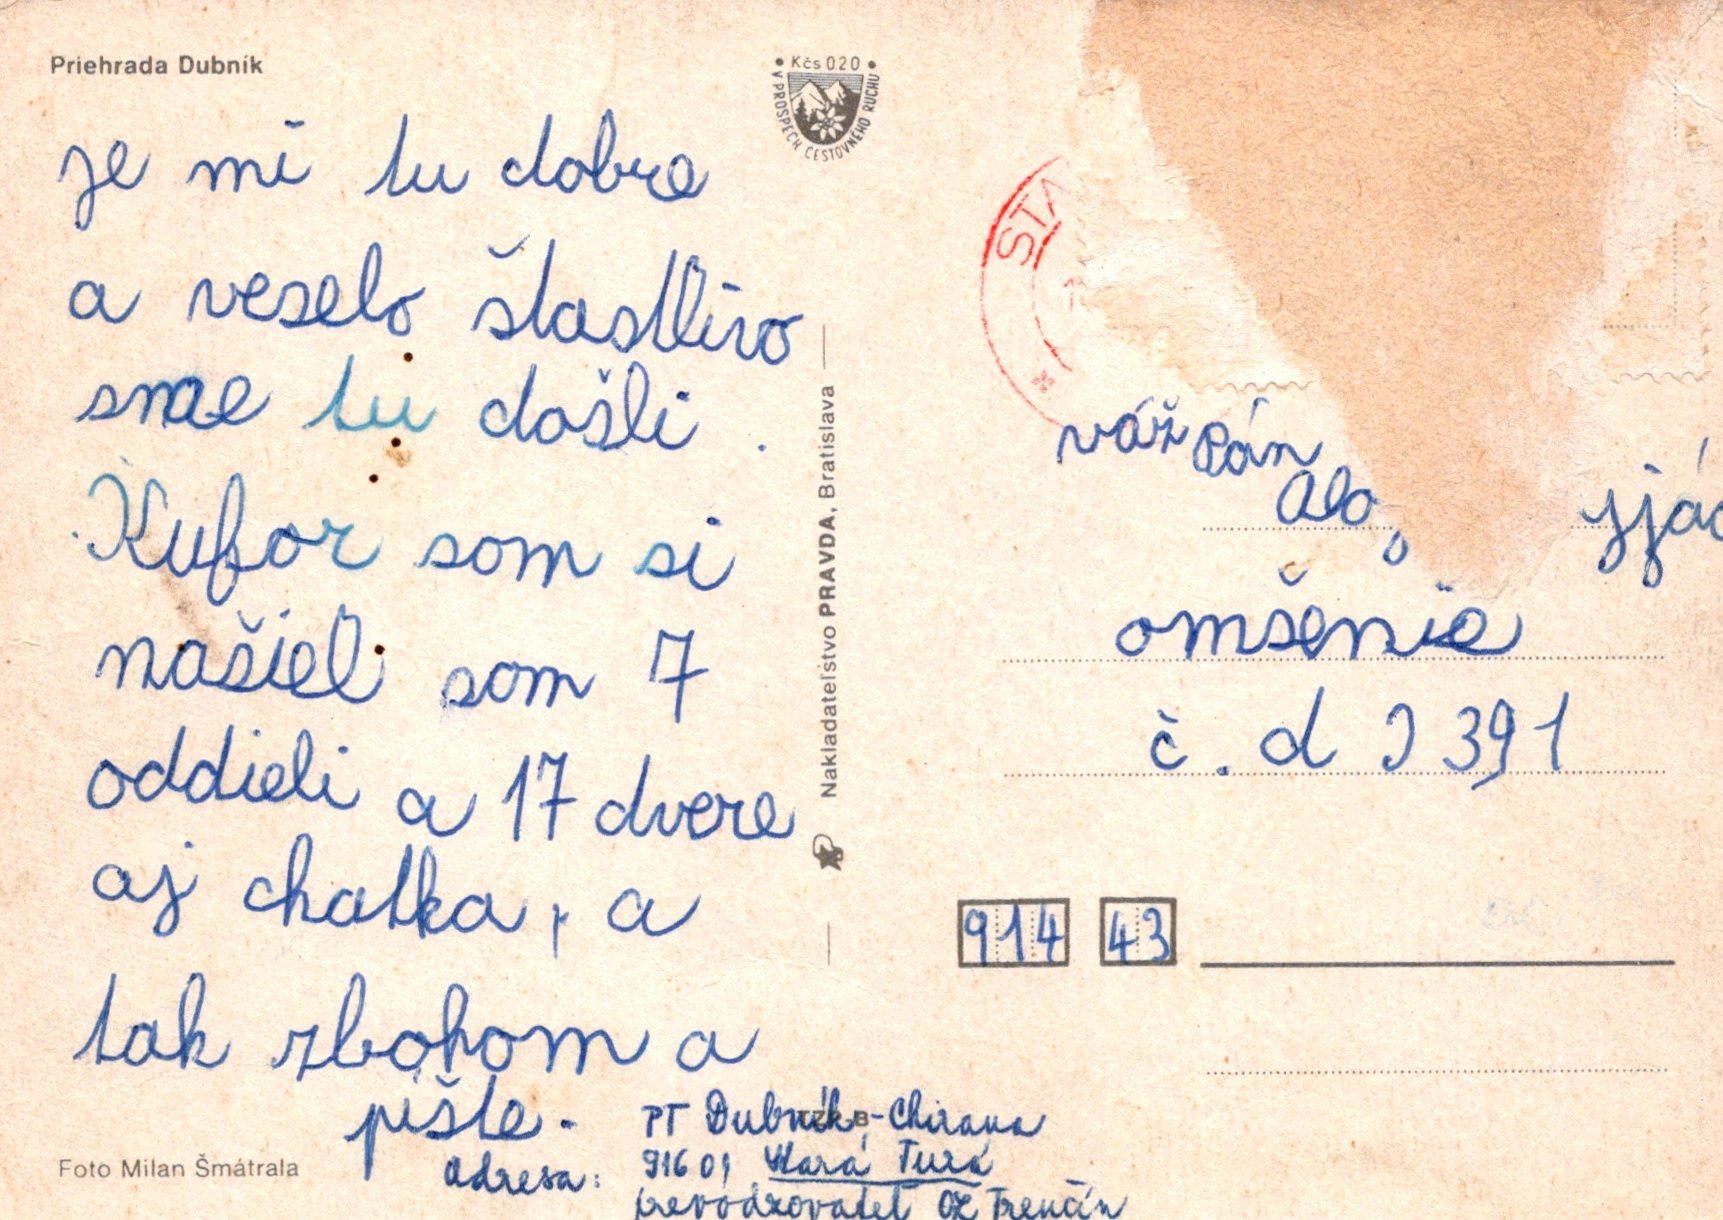 Priehrada Dubník
Kčs 0.20
V PROSPECH CESTOVNÉHO RUCHU
je mi tu dobre
a veselo šťastlivo
sme tu došli.
Kufor som si
našiel som 7
oddieli a 17 dvere
aj chatka, a
tak zbohom a
píšte.
Foto Milan Šmátrala
adresa:
PT Dubník-Chirana
916 01 Stará Turá
prevádzovatel OZ Trenčín
Nakladateľstvo PRAVDA, Bratislava
STA
váž Pán
Alo
omšenie
č. d 391
914 43